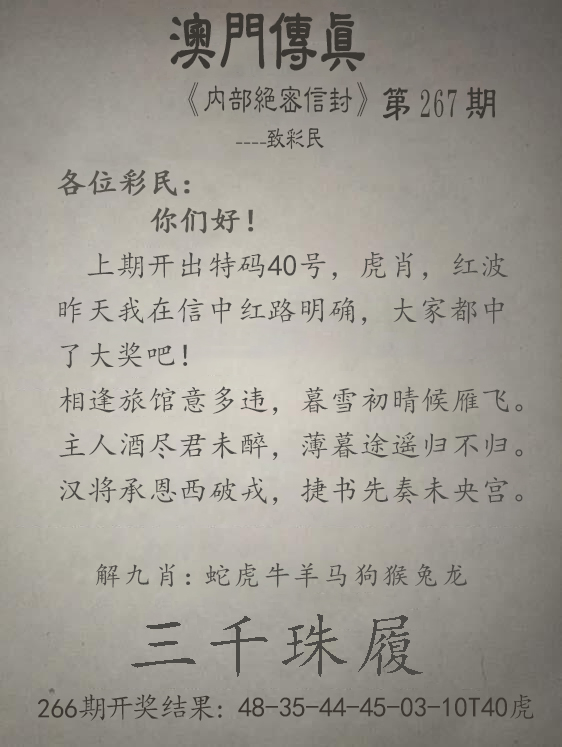 澳門傳眞
《内部絕密信封》第267期
----致彩民
各位彩民：
你们好！
上期开出特码40号，虎肖，红波
昨天我在信中红路明确，大家都中
了大奖吧！
相逢旅馆意多违，暮雪初晴候雁飞。
主人酒尽君未醉，薄暮途遥归不归。
汉将承恩西破戎，捷书先奏未央宫。
解九肖：蛇虎牛羊马狗猴兔龙
三千珠履
266期开奖结果：48-35-44-45-03-10T40虎